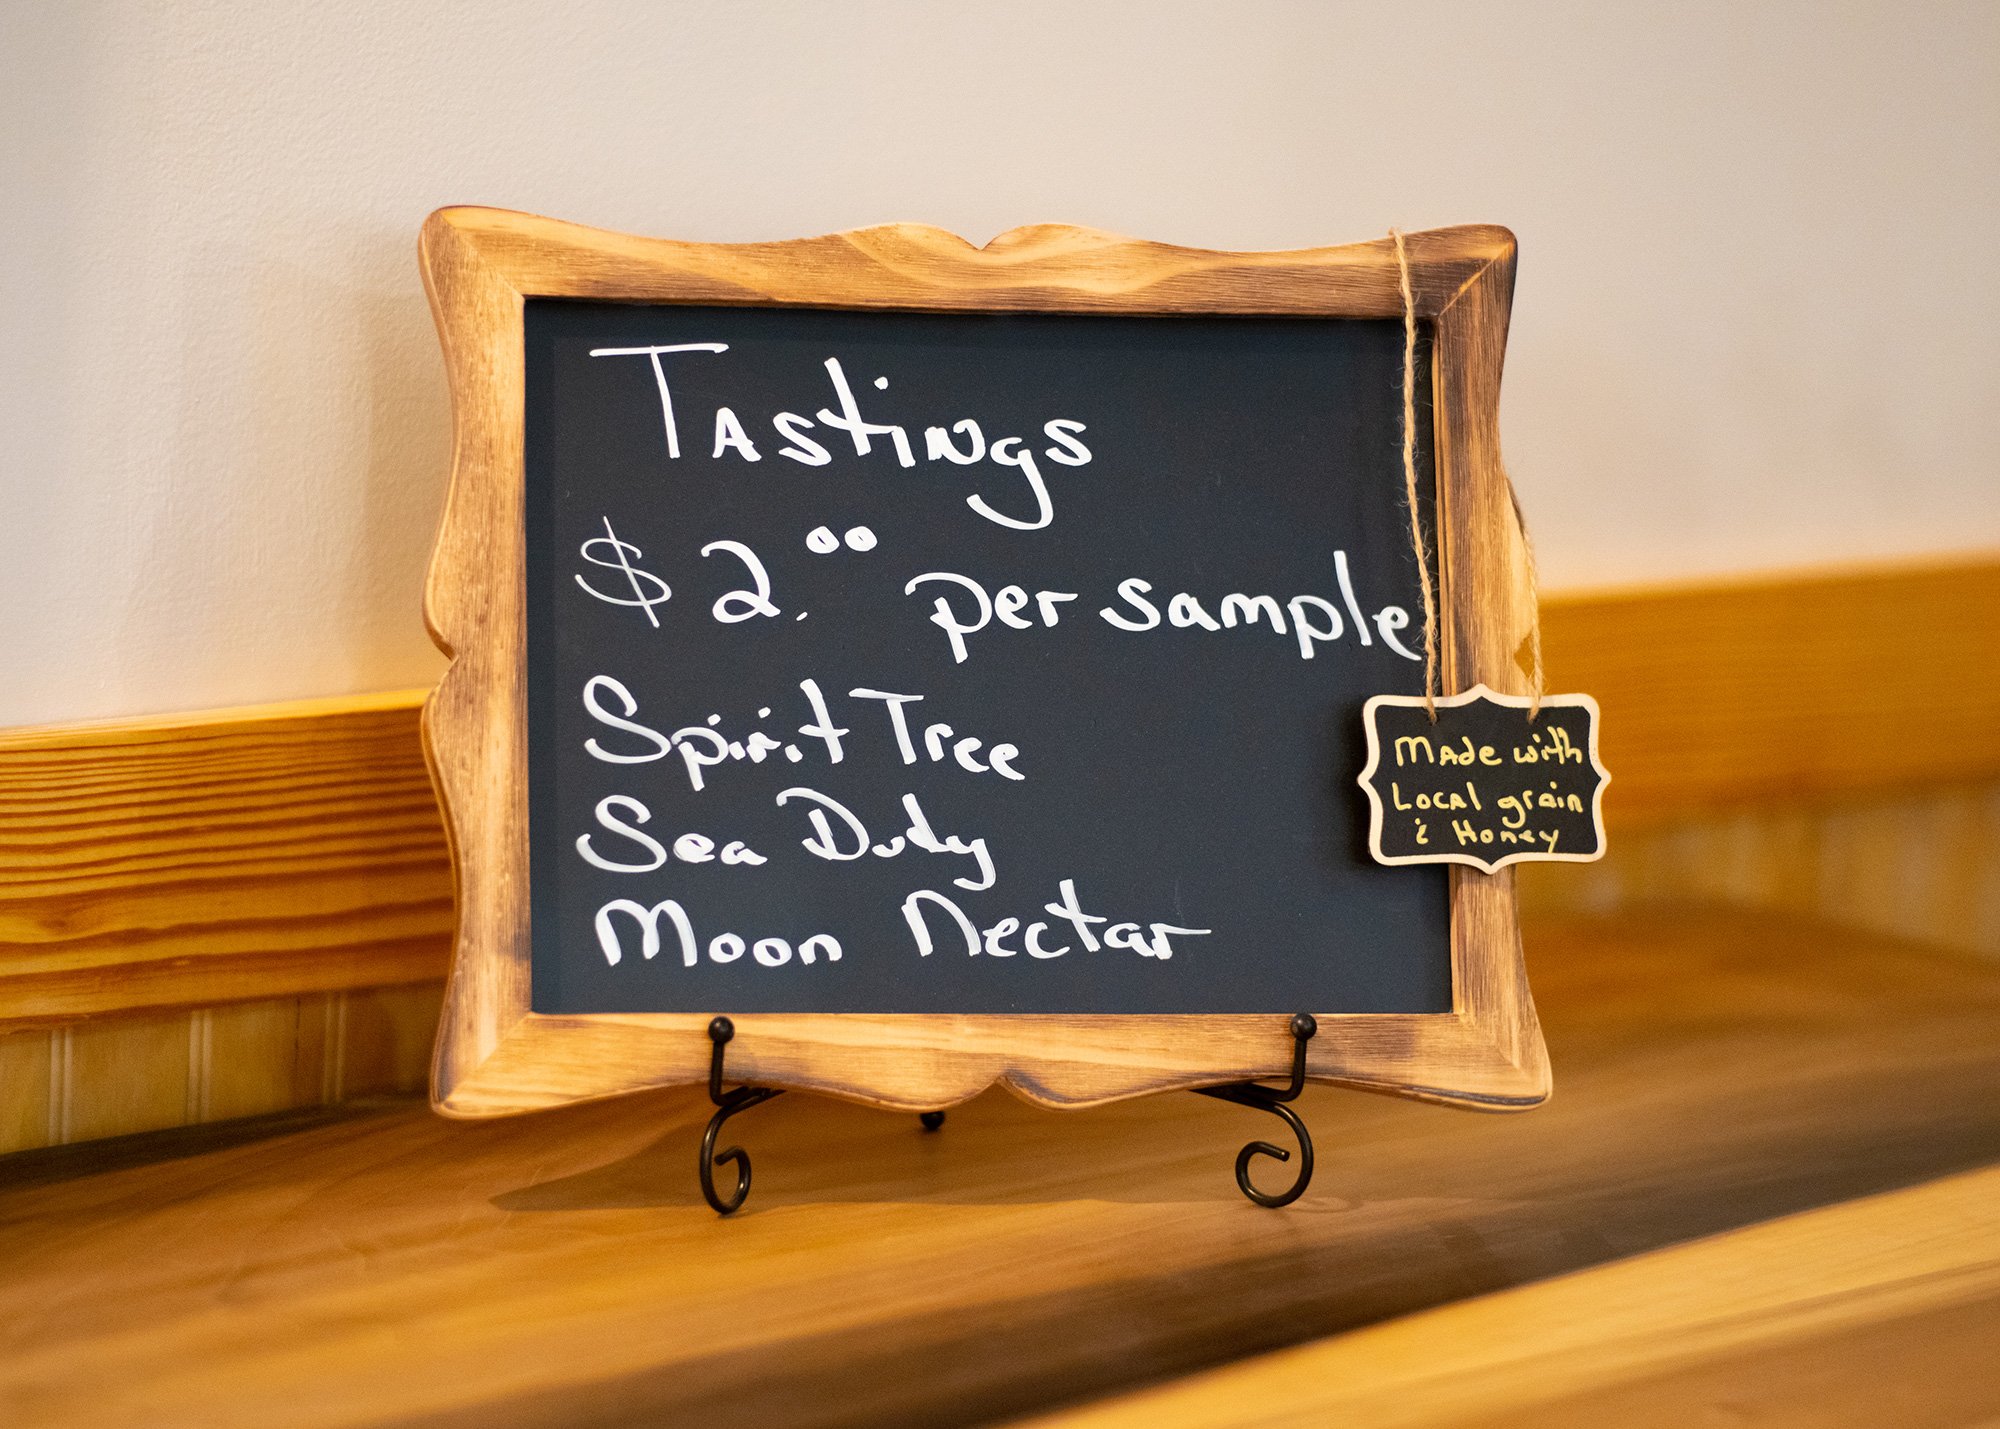 Tastings
$2.00 per sample
Spirit Tree
Sea Duty
Moon Nectar
Made with
Local grain
& Honey